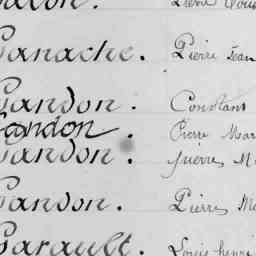 Ganache. Pierre Jean
Gandon. Constant
Gandon. Pierre Mar
Gandon. Pierre M
Gandon. Pierre M
Garault. Louis henri